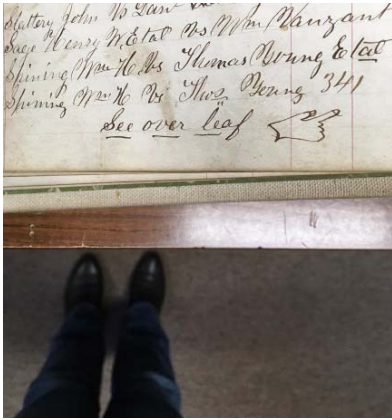 Slattery John Vs
Sage Henry W. Etal Vs Wm Vanzant
Spining Wm H. Vs Thomas Young Etal
Spining Wm H Vs Thos Young 341
See over leaf